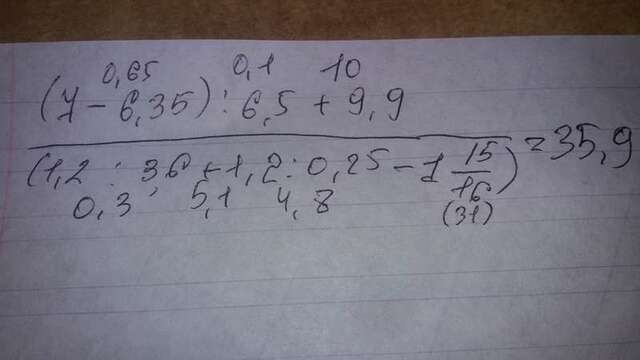 0,65 0,1 10
(7 - 6,35) : 6,5 + 9,9
(1,2 : 3,6 + 1,2 : 0,25 - 1 15/16) = 35,9
0,3 5,1 4,8 (31)